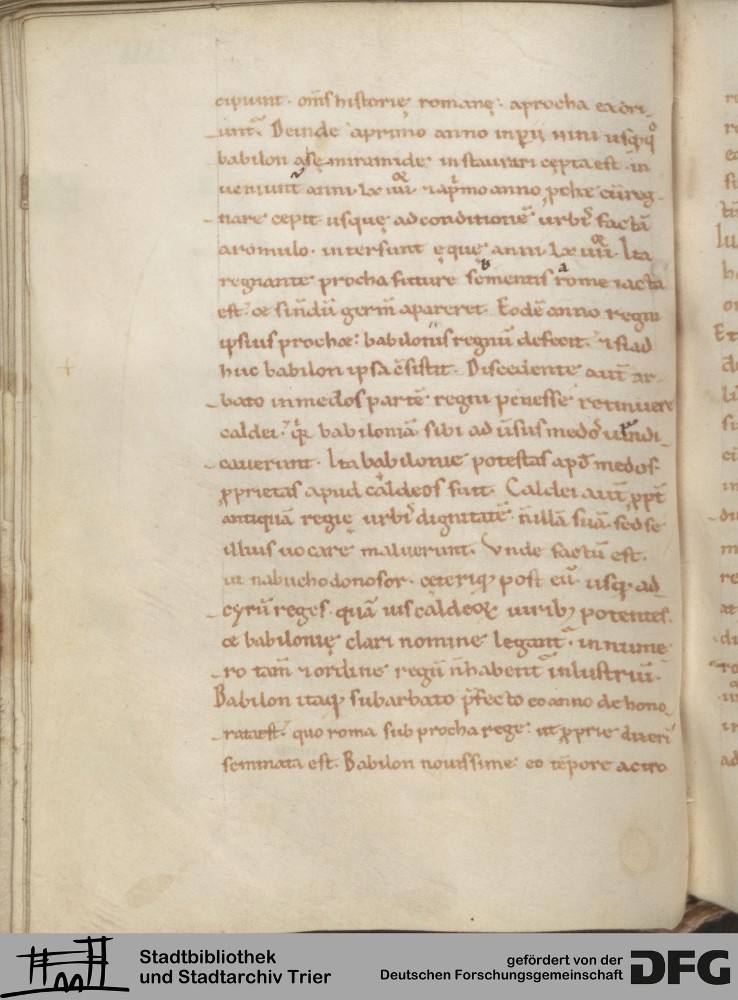 cipiunt · om̅s historie romane · aprocha exori-
unt᷑ Deinde aprimo anno inperii nini usq;quo
babilon a semiramide instaurari cepta est · in
ueniunt anni lxiiii · & aprimo anno prochae cu̅ reg-
nare cepit usque ad conditione̅ urbis facta̅
aromulo · intersunt eque anni lxiiii · Ita
regnante procha future sementis rome iacta
est · & si nondu̅ germen apareret · Eode̅ anno regni
ipsius prochae : babilonis regnu̅ defecit · & si ad
huc babilon ipsa co̅sistit · Discedente aute̅ ar-
bato inmedos parte̅ regni penesse retinuere
caldei · qui babilonia̅ sibi aduersus medos uindi-
cauerunt · Ita babilonie potestas apud medos ·
proprietas apud caldeos fuit · Caldei aute̅ propt̅
antiqua̅ regie urbis dignitate̅ · non illa̅ sua̅ · sed se
illius uocare maluerunt · Unde factu̅ est ·
ut nabuchodonosor · ceteriq; post eu̅ · usq; ad
cyru̅ reges · qua̅uis caldeorum uirib; potentes ·
& babilonie clari nomine legant᷑ · in nume-
ro tam̅ & ordine regu̅ n̅ habent᷑ inlustriu̅ ·
Babilon itaq; subarbato p̅fecto eo anno dehono-
rata est · quo roma sub procha rege · ut proprie dixeri̅
seminata est · Babilon nouissime eo te̅pore aciro
Stadtbibliothek
und Stadtarchiv Trier
gefördert von der
Deutschen Forschungsgemeinschaft
DFG